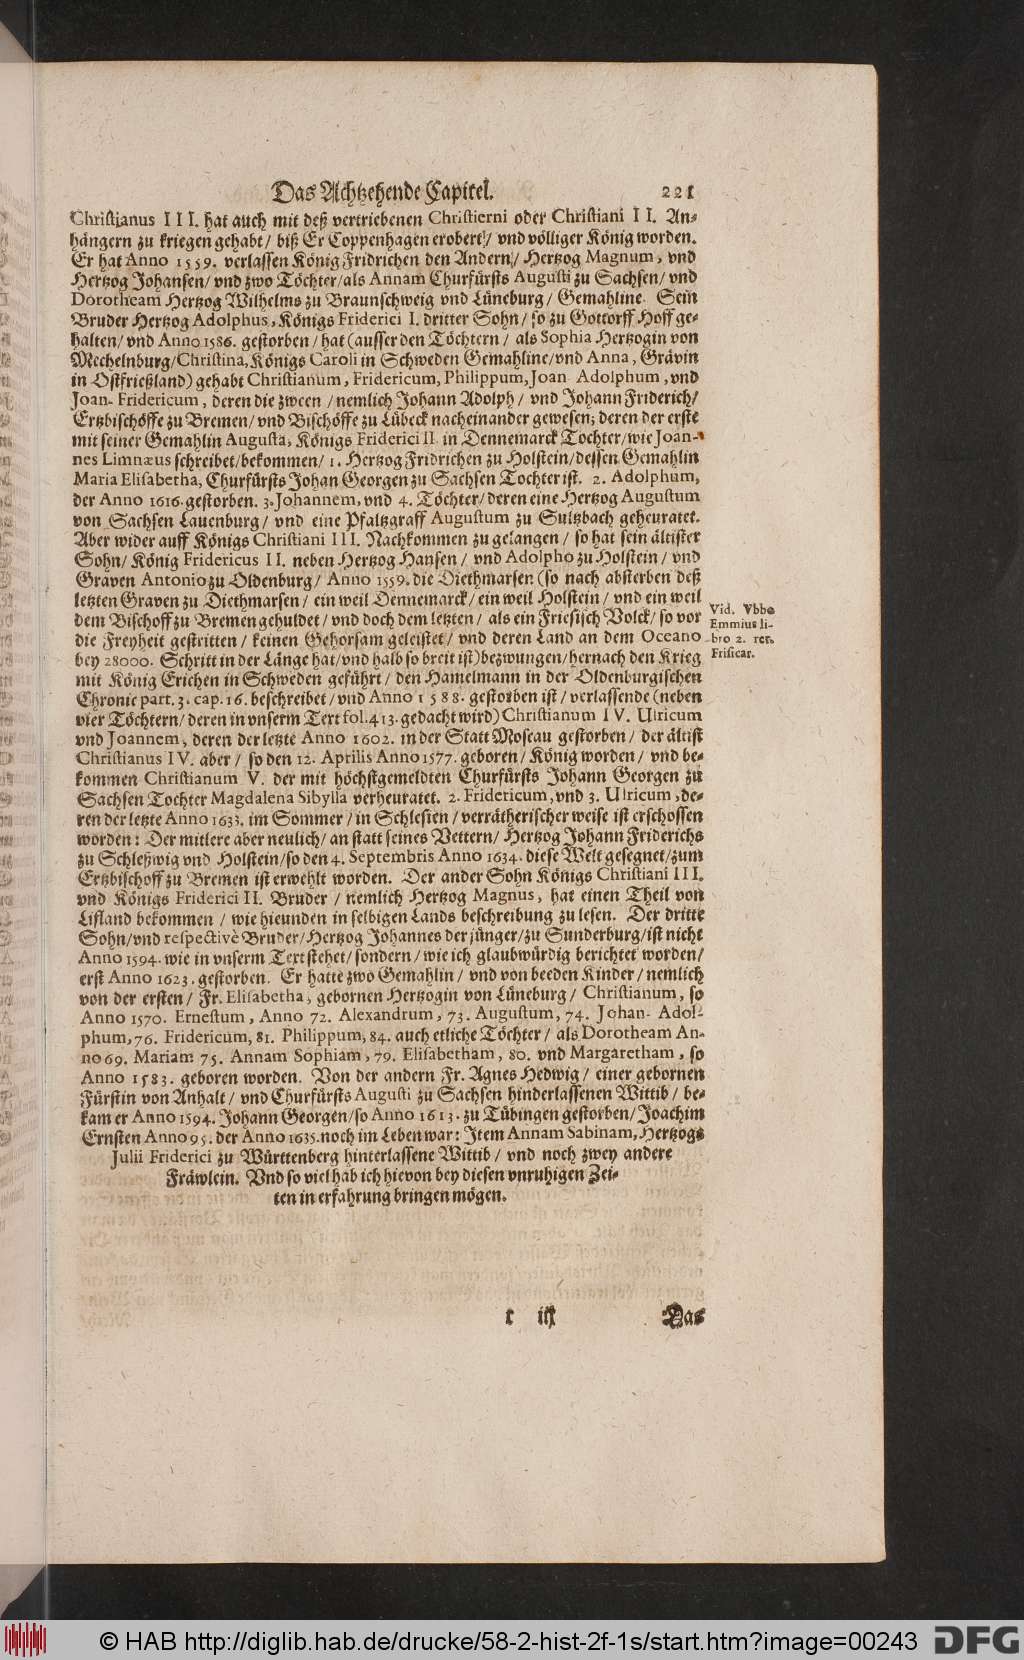 Das Achtzehende Capitel. 221
Christianus III. hat auch mit deß vertriebenen Christierni oder Christiani II. An-
hängern zu kriegen gehabt/ biß Er Coppenhagen erobert/ vnd völliger König worden.
Er hat Anno 1559. verlassen König Fridrichen den Andern/ Hertzog Magnum, vnd
Hertzog Johansen/ vnd zwo Töchter/ als Annam Churfürsts Augusti zu Sachsen/ vnd
Dorotheam Hertzog Wilhelms zu Braunschweig vnd Lüneburg/ Gemahline. Sein
Bruder Hertzog Adolphus, Königs Friderici I. dritter Sohn/ so zu Gottorff Hoff ge-
halten/ vnd Anno 1586. gestorben/ hat (ausser den Töchtern/ als Sophia Hertzogin von
Mechelnburg/ Christina, Königs Caroli in Schweden Gemahline/ vnd Anna, Grävin
in Ostfrießland) gehabt Christianum, Fridericum, Philippum, Joan- Adolphum, vnd
Joan- Fridericum, deren die zween/ nemlich Johann Adolph/ vnd Johann Friderich/
Ertzbischöffe zu Bremen/ vnd Bischöffe zu Lübeck nacheinander gewesen; deren der erste
mit seiner Gemahlin Augusta, Königs Friderici II. in Dennemarck Tochter/ wie Joan-
nes Limnæus schreibet/ bekommen/ 1. Hertzog Fridrichen zu Holstein/ dessen Gemahlin
Maria Elisabetha, Churfürsts Johan Georgen zu Sachsen Tochter ist. 2. Adolphum,
der Anno 1616. gestorben. 3. Johannem, vnd 4. Töchter/ deren eine Hertzog Augustum
von Sachsen Lauenburg/ vnd eine Pfaltzgraff Augustum zu Sultzbach geheuratet.
Aber wider auff Königs Christiani III. Nachkommen zu gelangen/ so hat sein ältister
Sohn/ König Fridericus II. neben Hertzog Hansen/ vnd Adolpho zu Holstein/ vnd
Graven Antonio zu Oldenburg/ Anno 1559. die Diethmarsen (so nach absterben deß
letzten Graven zu Diethmarsen/ ein weil Dennemarck/ ein weil Holstein/ vnd ein weil
dem Bischoff zu Bremen gehuldet/ vnd doch dem letzten/ als ein Friesisch Volck/ so vor
die Freyheit gestritten/ keinen Gehorsam geleistet/ vnd deren Land an dem Oceano
bey 28000. Schritt in der Länge hat/ vnd halb so breit ist) bezwungen/ hernach den Krieg
mit König Erichen in Schweden geführt/ den Hamelmann in der Oldenburgischen
Chronic part. 3. cap. 16. beschreibet/ vnd Anno 1588. gestorben ist/ verlassende (neben
vier Töchtern/ deren in vnserm Text fol. 413. gedacht wird) Christianum IV. Ulricum
vnd Joannem, deren der letzte Anno 1602. in der Statt Moscau gestorben/ der ältist
Christianus IV. aber/ so den 12. Aprilis Anno 1577. geboren/ König worden/ vnd be-
kommen Christianum V. der mit höchstgemeldten Churfürsts Johann Georgen zu
Sachsen Tochter Magdalena Sibylla verheuratet. 2. Fridericum, vnd 3. Ulricum, de-
ren der letzte Anno 1633. im Sommer/ in Schlesien/ verrätherischer weise ist erschossen
worden: Der mitlere aber neulich/ an statt seines Vettern/ Hertzog Johann Friderichs
zu Schleßwig vnd Holstein/ so den 4. Septembris Anno 1634. diese Welt gesegnet/ zum
Ertzbischoff zu Bremen ist erwehlt worden. Der ander Sohn Königs Christiani III.
vnd Königs Friderici II. Bruder/ nemlich Hertzog Magnus, hat einen Theil von
Lifland bekommen/ wie hieunden in selbigen Lands beschreibung zu lesen. Der dritte
Sohn/ vnd respectivè Bruder/ Hertzog Johannes der jünger/ zu Sunderburg/ ist nicht
Anno 1594. wie in vnserm Text stehet/ sondern/ wie ich glaubwürdig berichtet worden/
erst Anno 1623. gestorben. Er hatte zwo Gemahlin/ vnd von beeden Kinder/ nemlich
von der ersten/ Fr. Elisabetha, gebornen Hertzogin von Lüneburg/ Christianum, so
Anno 1570. Ernestum, Anno 72. Alexandrum, 73. Augustum, 74. Johan- Adol-
phum, 76. Fridericum, 81. Philippum, 84. auch etliche Töchter/ als Dorotheam An-
no 69. Mariam 75. Annam Sophiam, 79. Elisabetham, 80. vnd Margaretham, so
Anno 1583. geboren worden. Von der andern Fr. Agnes Hedwig/ einer gebornen
Fürstin von Anhalt/ vnd Churfürsts Augusti zu Sachsen hinderlassenen Wittib/ be-
kam er Anno 1594. Johann Georgen/ so Anno 1613. zu Tübingen gestorben/ Joachim
Ernsten Anno 95. der Anno 1635. noch im Leben war: Item Annam Sabinam, Hertzogs
Julii Friderici zu Württenberg hinterlassene Wittib/ vnd noch zwey andere
Fräwlein. Vnd so viel hab ich hievon bey diesen vnruhigen Zei-
ten in erfahrung bringen mögen.
Vid. Vbbo
Emmius li-
bro 2. rer.
Frisicar.
r iij Das
© HAB http://diglib.hab.de/drucke/58-2-hist-2f-1s/start.htm?image=00243 DFG